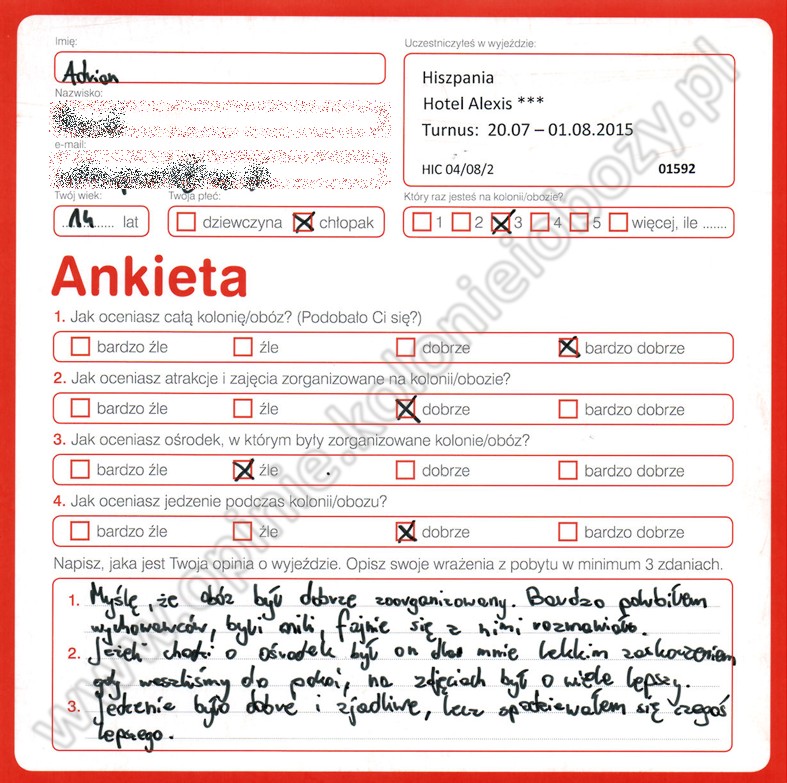 Imię:
Adrian
Nazwisko:
e-mail:
Twój wiek:
14 lat
Twoja płeć:
dziewczyna chłopak
Uczestniczyłeś w wyjeździe:
Hiszpania
Hotel Alexis ***
Turnus: 20.07 – 01.08.2015
HIC 04/08/2 01592
Który raz jesteś na kolonii/obozie?
1 2 3 4 5 więcej, ile .......
Ankieta
1. Jak oceniasz całą kolonię/obóz? (Podobało Ci się?)
bardzo źle źle dobrze bardzo dobrze
2. Jak oceniasz atrakcje i zajęcia zorganizowane na kolonii/obozie?
bardzo źle źle dobrze bardzo dobrze
3. Jak oceniasz ośrodek, w którym były zorganizowane kolonie/obóz?
bardzo źle źle dobrze bardzo dobrze
4. Jak oceniasz jedzenie podczas kolonii/obozu?
bardzo źle źle dobrze bardzo dobrze
Napisz, jaka jest Twoja opinia o wyjeździe. Opisz swoje wrażenia z pobytu w minimum 3 zdaniach.
1. Myślę, że obóz był dobrze zoorganizowany. Bardzo polubiłem
wychowawców, byli mili, fajnie się z nimi rozmawiało.
2. Jeżeli chodzi o ośrodek był on dla mnie lekkim zaskoczeniem
gdy weszliśmy do pokoi, na zdjęciach był o wiele lepszy.
3. Jedzenie było dobre i zjadliwe, lecz spodziewałem się czegoś
lepszego.
www.opinie.kolonieiobozy.pl